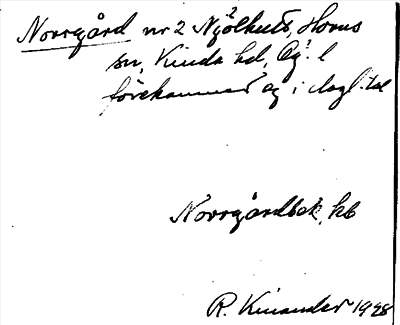 Norrgård nr 2 Njölhult, Horns
sn, Kinda hd, Ög. l
förekommer ej i dagl. tal
Norrgårdbek. kb
R. Kinander 1928